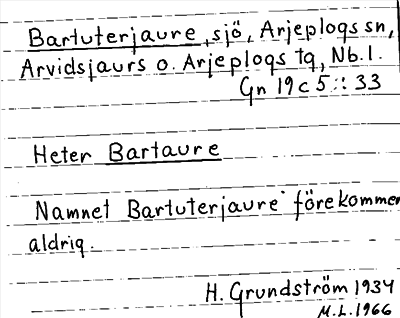 Bartuterjaure, sjö, Arjeplogs sn,
Arvidsjaurs o. Arjeplogs tg, Nb.l.
Gn 19 c 5 :: 33
Heter Bartaure
Namnet Bartuterjaure förekommer
aldrig.
H. Grundström 1934
M.L. 1966